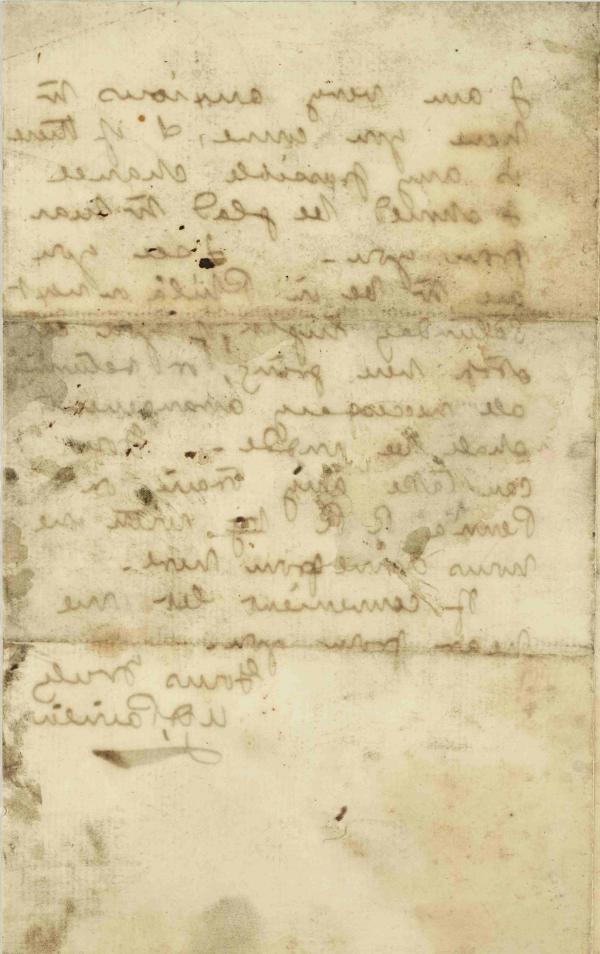 I am very anxious to
have you come, & if there
is any possible chance
I should be glad to hear
from you – I see you
are to be in Phil'a next
Saturday night, if you
stop here going, or return
all necessary arrangements
shall be made – You
can take any train on
Penna R R
If convenient let me
hear from you
Yours truly